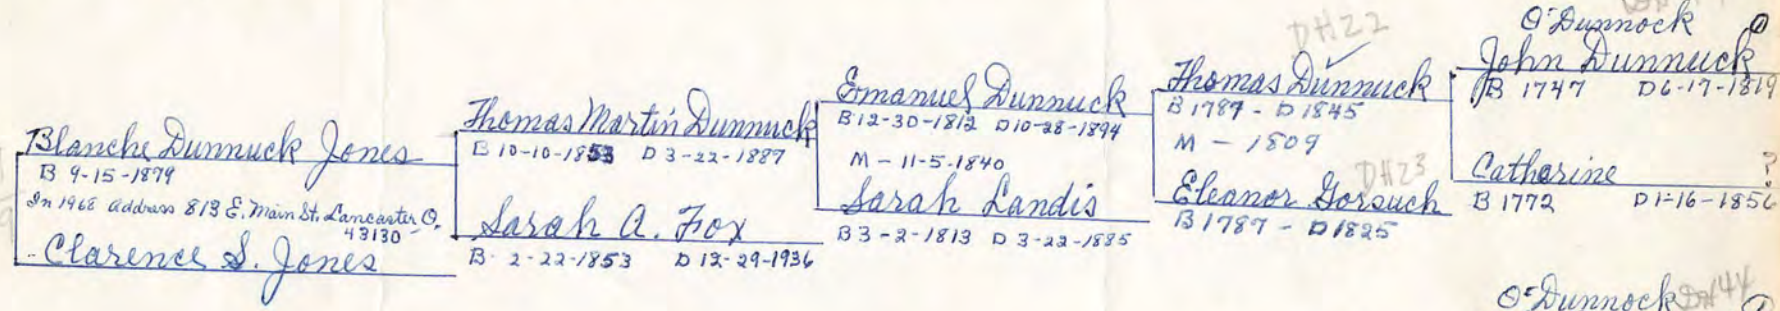 Blanche Dunnuck Jones
B 9-15-1879
In 1968 address 813 E. Main St. Lancaster O.
43130
Clarence S. Jones
Thomas Martin Dunnuck
B 10-10-1853 D 3-22-1887
Sarah A. Fox
B. 2-22-1853 D 12-29-1936
Emanuel Dunnuck
B 12-30-1812 D 10-28-1894
M - 11-5-1840
Sarah Landis
B 3-2-1813 D 3-22-1885
DH22
Thomas Dunnuck
B 1787 - D 1845
M - 1809
DH23
Eleanor Gorsuch
B 1787 - D 1825
O'Dunnock
John Dunnuck
B 1747 D 6-17-1819
Catharine ?
B 1772 D 1-16-1856
O'Dunnock DH44